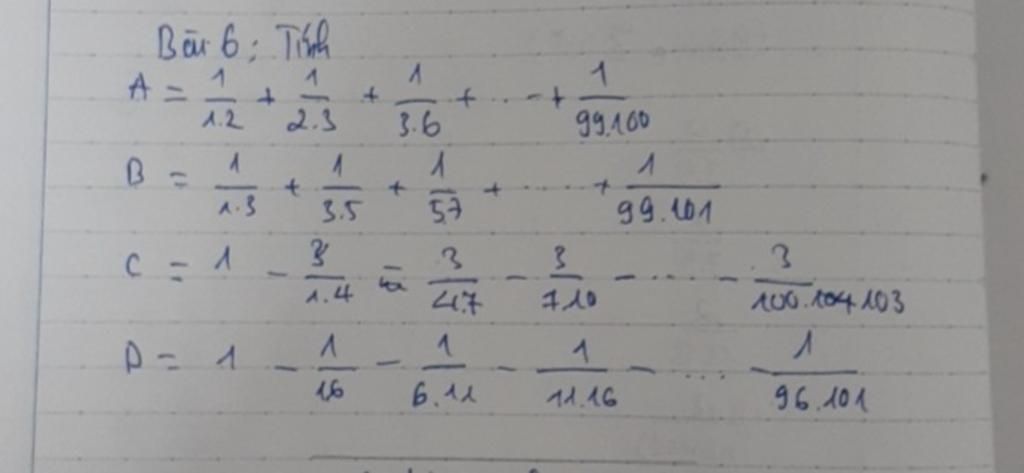 Bài 6: Tính
A = 1/1.2 + 1/2.3 + 1/3.6 + ... + 1/99.100
B = 1/1.3 + 1/3.5 + 1/5.7 + ..... + 1/99.101
C = 1 - 3/1.4 - 3/4.7 - 3/7.10 - .... - 3/100.103
D = 1 - 1/1.6 - 1/6.11 - 1/11.16 - .... - 1/96.101